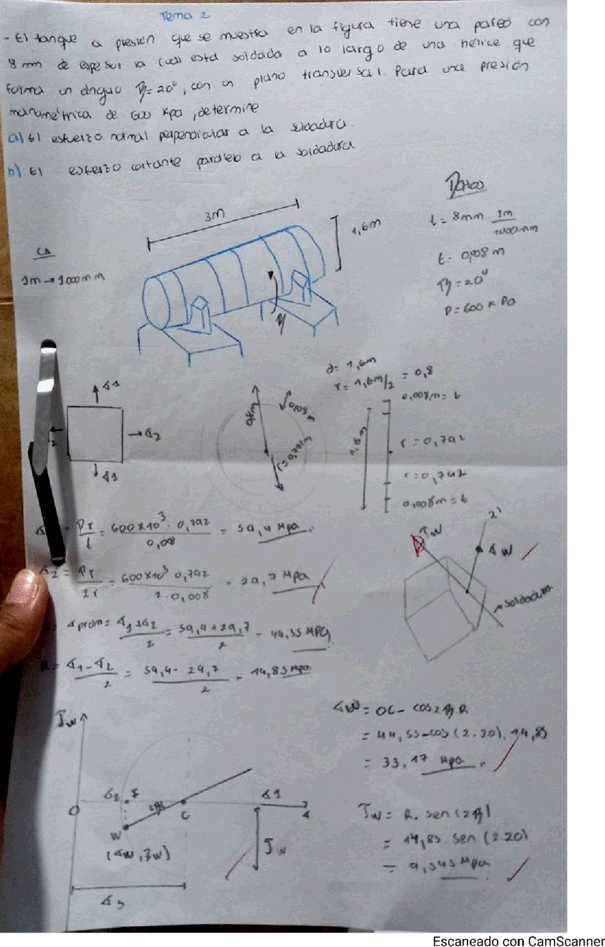 Tema 2
- El tanque a presión que se muestra en la figura tiene una pared con
8 mm de espesor la cual está soldada a lo largo de una hélice que
forma un ángulo β=20°, con un plano transversal. Para una presión
manométrica de 600 Kpa, determine
a) El esfuerzo normal perpendicular a la soldadura.
b) El esfuerzo cortante paralelo a la soldadura
Datos
t = 8mm . 1m
1000mm
t = 0,008m
β = 20°
P = 600 K Pa
CA
1m → 1000mm
3m
1,6m
β
d = 1,6m
r = 1,6m/2 = 0,8
0,008m = t
r = 0,792
r = 0,792
0,008m = t
1,6m
0,8m
0,008m
σ1
σ2
σ1
= Pr/t = 600x10³ . 0,792 / 0,008 = 59,4 Mpa.
σ2 = Pr/2t = 600x10³ 0,792 / 2 . 0,008 = 29,7 Mpa
σprom = σ1+σ2 / 2 = 59,4+29,7 / 2 = 44,55 MPa
R = σ1-σ2 / 2 = 59,4 - 29,7 / 2 = 14,85 Mpa
τw
z'
σw
soldadura
τw
O
σ2
2β
C
σ1
W
(σw, τw)
σw = OC - cos2β R
= 44,55 - cos(2.20).14,85
= 33,17 Mpa.
τw = R. sen(2β)
= 14,85. sen(2.20)
= 9,545 Mpa
Escaneado con CamScanner